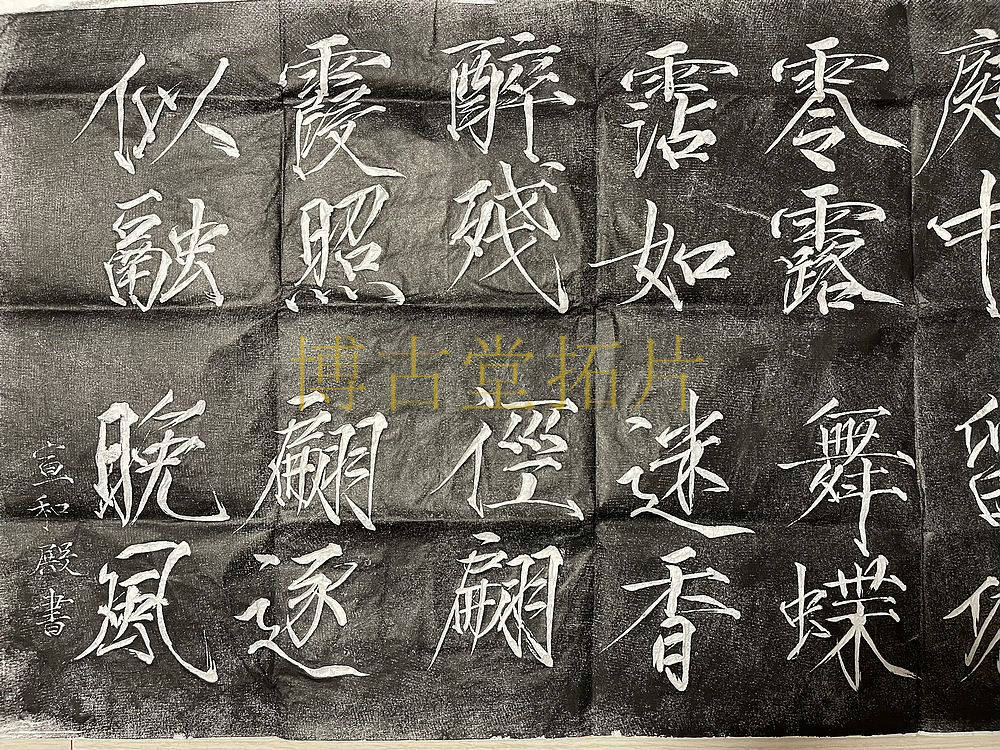 庭中
零露舞蝶
霑如迷香
醉残俓翩
霞照翩逐
似融晚風
宣和殿書
博古堂拓片